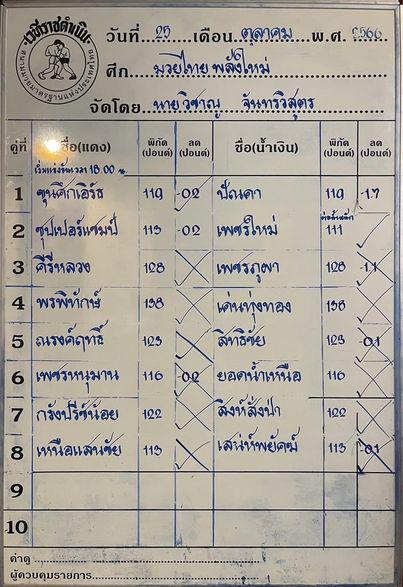 เวทีราชดำเนิน
สนามมวยมาตรฐานแห่งประเทศไทย
วันที่ 25 เดือน ตุลาคม พ.ศ. 2566
ศึก มวยไทย พลังใหม่
จัดโดย นาย วิชาญ จันทรวิสูตร
คู่ที่ ชื่อ(แดง) พิกัด (ปอนด์) ลด (ปอนด์) ชื่อ(น้ำเงิน) พิกัด (ปอนด์) ลด (ปอนด์)
เริ่มแข่งขันเวลา 18.00 น.
1 ขุนศึกเอิร์ธ 119 -0.2 ปัณดา 119 -1.7
2 ซุปเปอร์แชมป์ 113 -0.2 เพชรใหม่ 111
3 คีรีหลวง 128 เพชรภูผา 128 -1.1
4 พรพิทักษ์ 138 เด่นทุ่งทอง 138
5 ณรงค์ฤทธิ์ 123 สิทธิชัย 123 -0.1
6 เพชรหนุมาน 116 -0.2 ยอดน้ำเหนือ 116
7 กรังปรีซ์น้อย 122 สิงห์สั่งป่า 122
8 เหนือแสนชัย 113 เสน่ห์พยัคฆ์ 113 -0.1
9
10
ค่าดู
ผู้ควบคุมรายการ